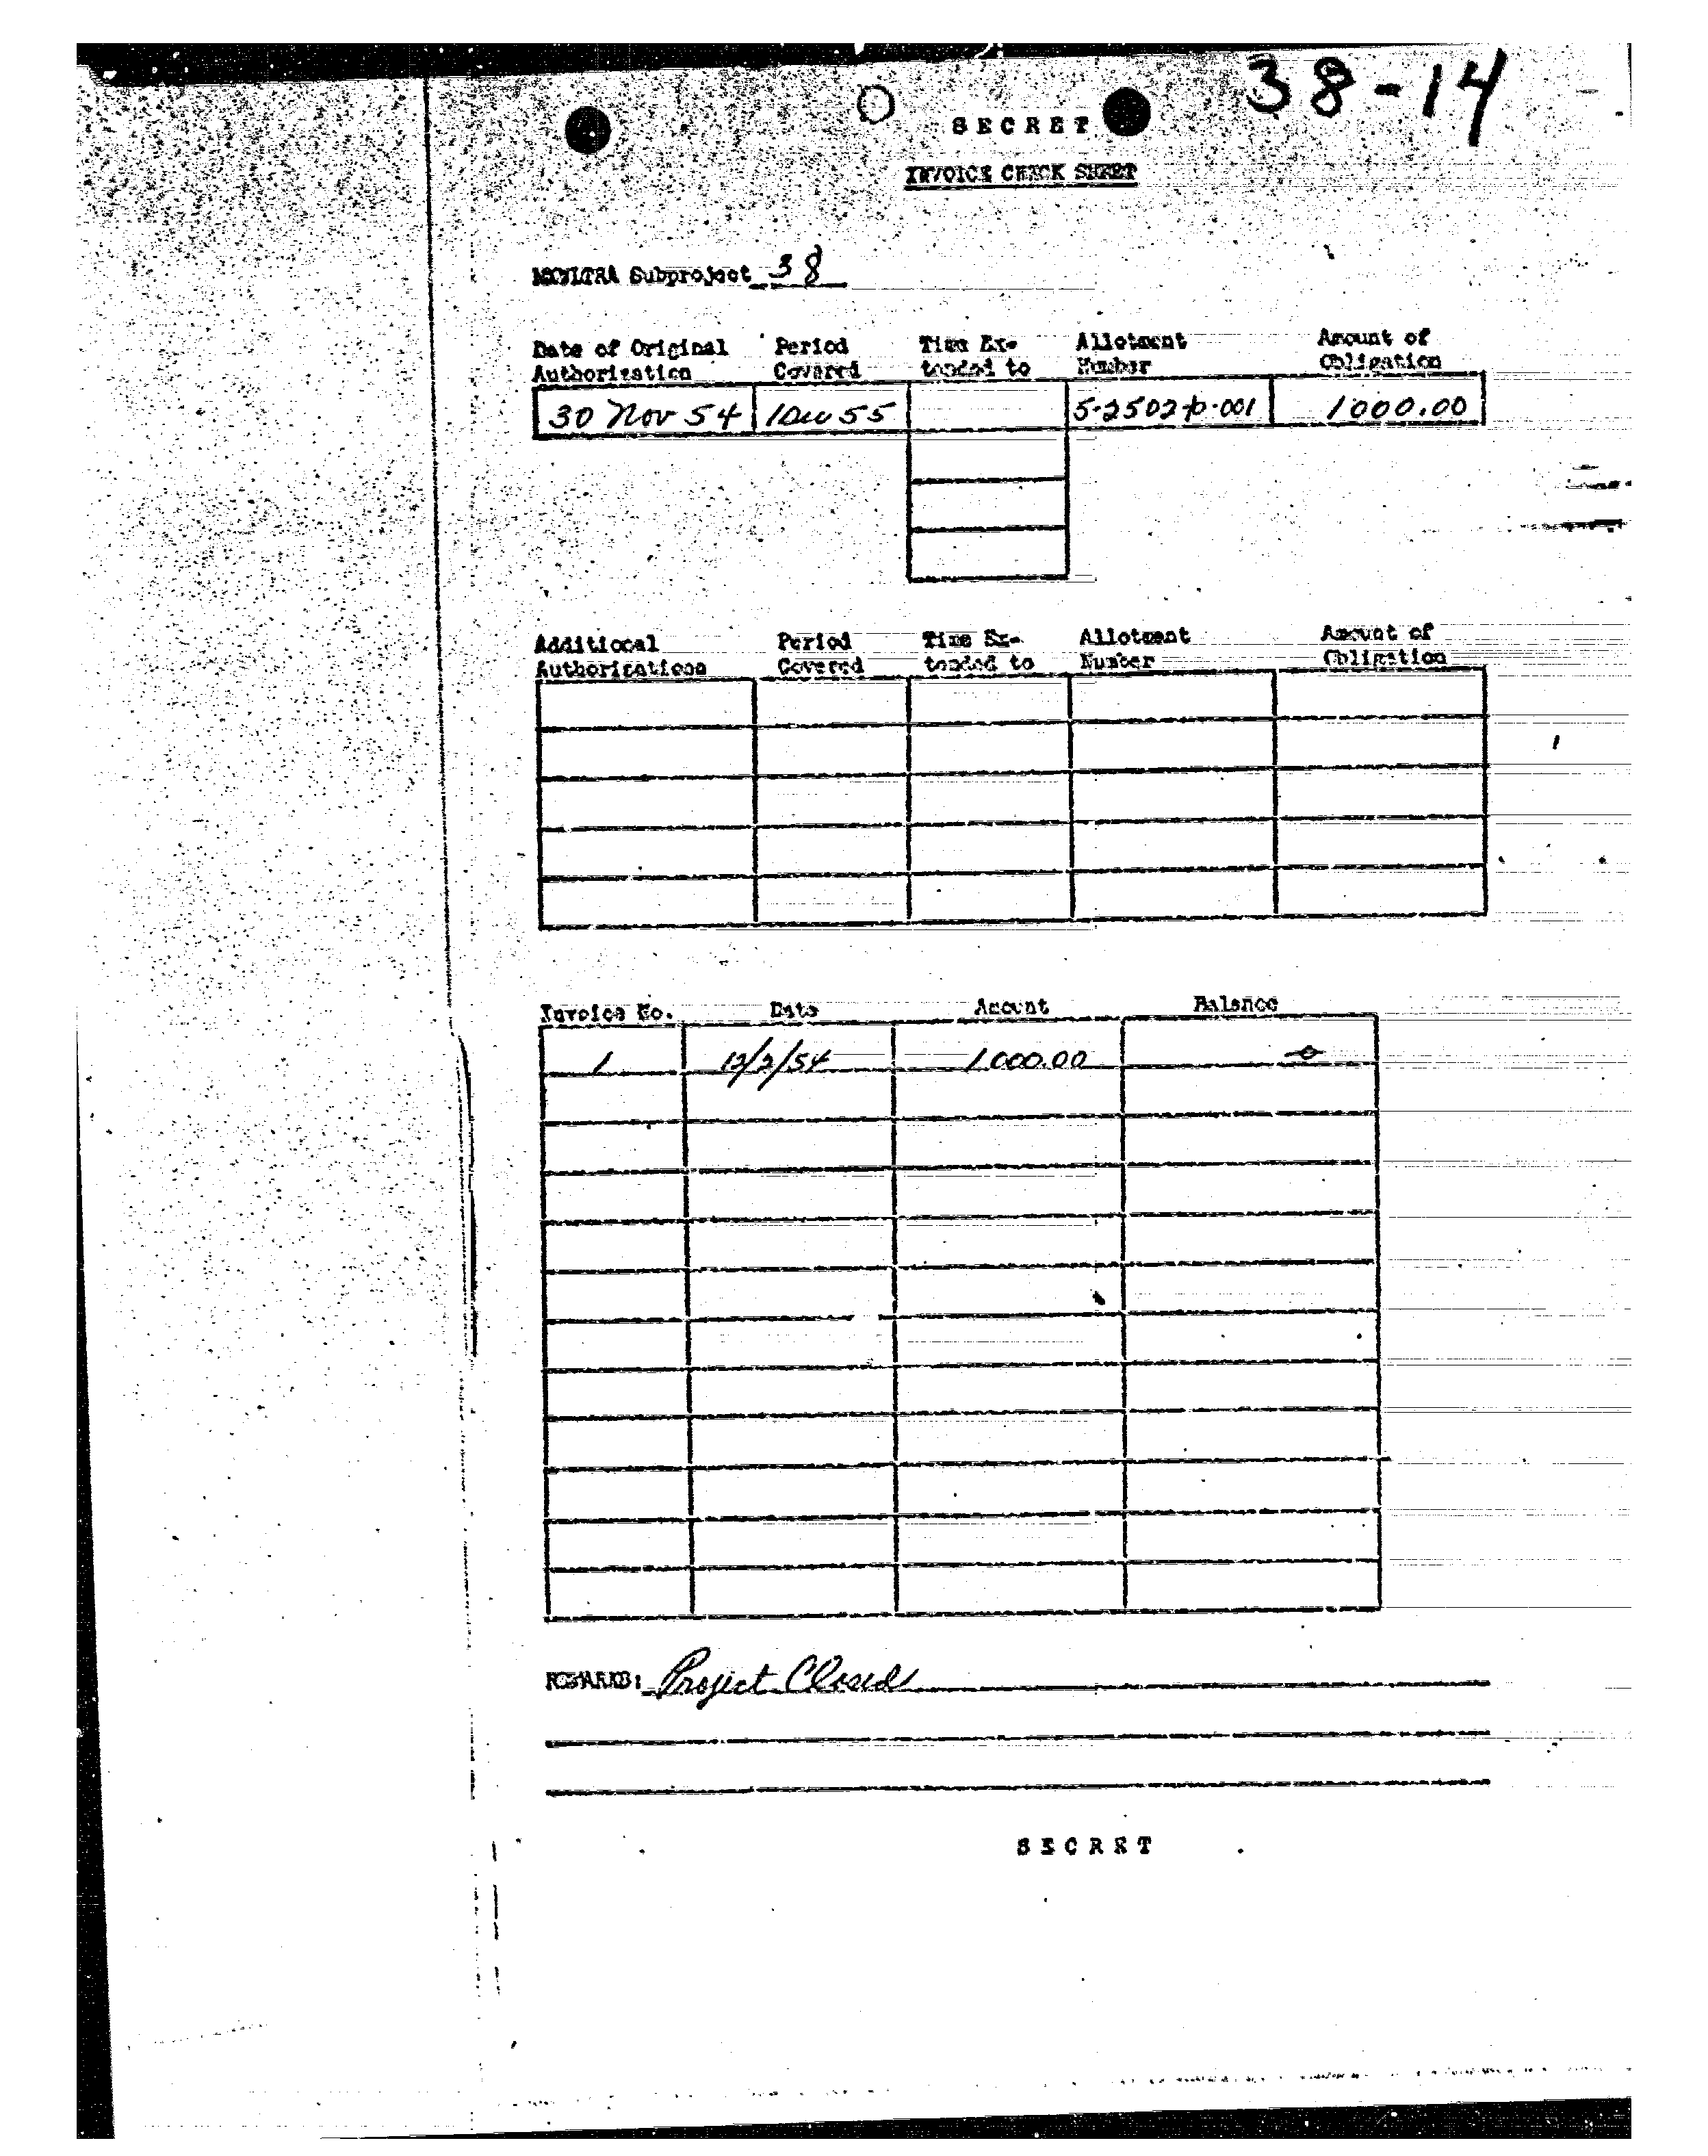 38-14
SECRET
INVOICE CHECK SHEET
MKULTRA Subproject 38
Date of Original Authorization Period Covered Time Ex-tended to Allotment Number Amount of Obligation
30 Nov 54 1 Dec 55 5-2502-10-001 1000.00
Additional Authorizations Period Covered Time Ex-tended to Allotment Number Amount of Obligation
Invoice No. Date Amount Balance
1 12/2/54 1000.00 0
REMARKS: Project Closed
SECRET